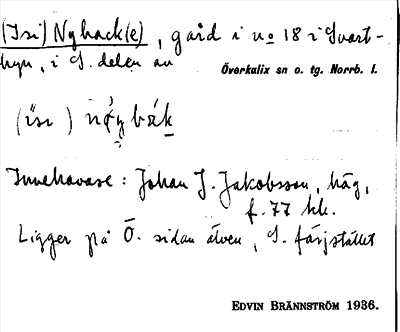 (Isi) Nyback(e), gård i no 18 i Svart-
byn, i S. delen av
Överkalix sn o. tg. Norrb. l.
(ïsı )
Innehavare: Johan J. Jakobsson, häg,
f. 77 hh.
Ligger på Ö. sidan älven, S. färjstället
EDVIN BRÄNNSTRÖM 1936.